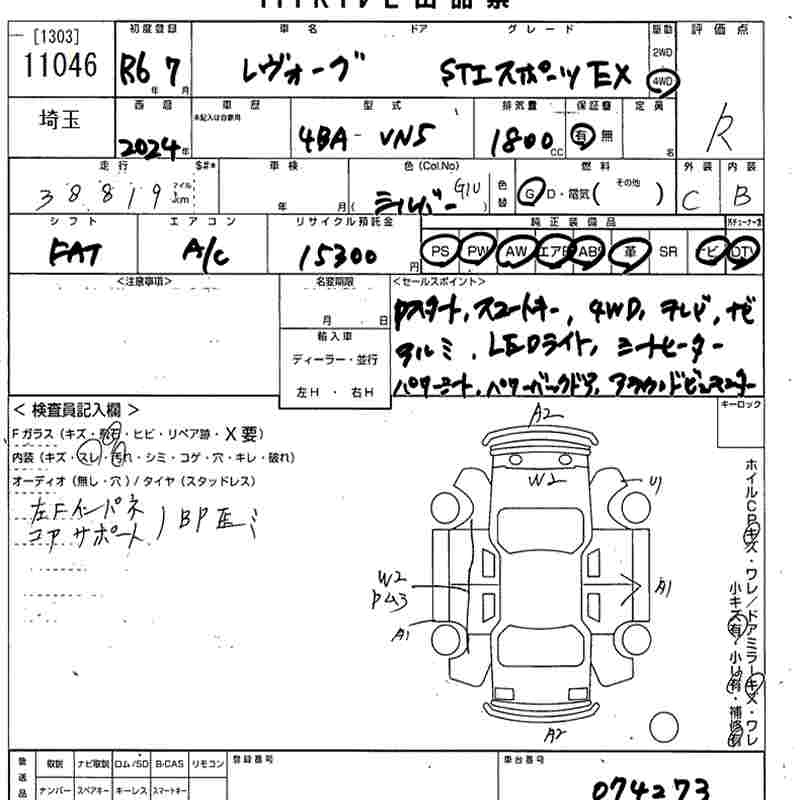 [1303]
11046
初度登録
R6 7
年 月
車名 ドア グレード
レヴォーグ STIスポーツ EX
駆動
2WD
4WD
評価点
R
埼玉
西暦
2024年
車歴
未記入は自家用
型式
4BA-VN5
排気量
1800
CC
保証書
有 無
定員
名
走行
38819
マイル
km
$#*
車検
年 月
色(Col.No)
シルバー G1U
色替
燃料
G・D・電気( その他 )
外装
C
内装
B
シフト
FAT
エアコン
A/C
リサイクル預託金
15300
円
純正装備品
PS PW AW エアB ABS 革 SR ナビ DTV
<注意事項>
名変期限
月 日
輸入車
ディーラー・並行
左H ・ 右H
<セールスポイント>
Pスタート, スマートキー, 4WD, テレビ, ナビ
アルミ, LEDライト, シートヒーター
パワーシート, パワーバックドア, アラウンドビューモニター
キーロック
< 検査員記入欄 >
Fガラス(キズ・飛石・ヒビ・リペア跡・X要)
内装(キズ・スレ・汚れ・シミ・コゲ・穴・キレ・破れ)
オーディオ(無し・穴)/タイヤ(スタッドレス)
左Fインパネ
コアサポート / BP歪ミ
A2
W2
リ
W2
A1
A1
A2
ホイルCPキズ・ワレ/ドアミラーキズ・ワレ
小キズ有・小U有・補修有
発送品
取説 ナビ取説 ロム/SD B-CAS リモコン
ナンバー スペアキー キーレス スマートキー
登録番号
車台番号
074273